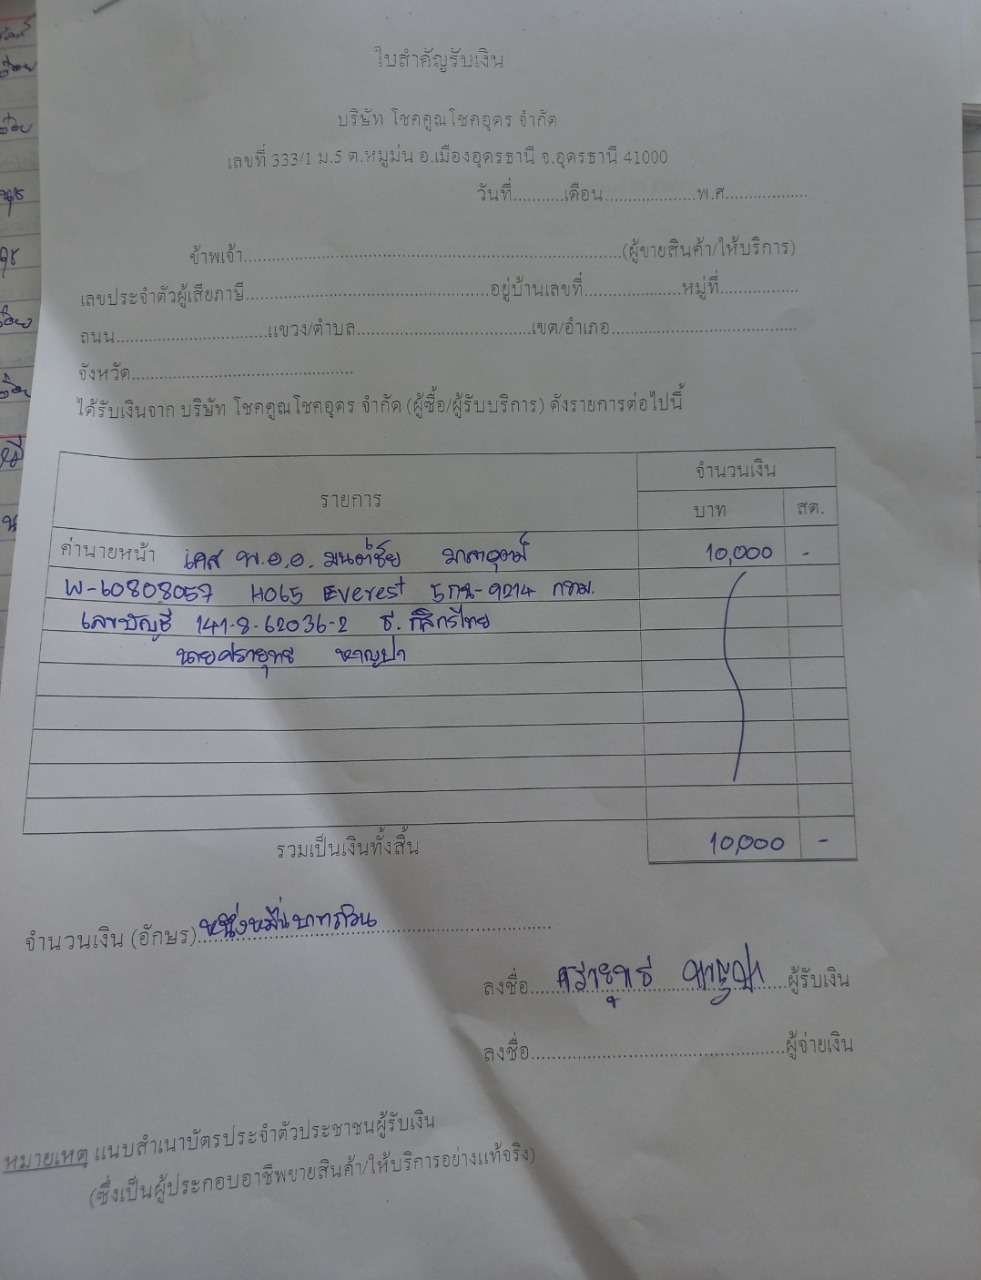 ใบสำคัญรับเงิน
บริษัท โชคคูณโชคอุดร จำกัด
เลขที่ 333/1 ม.5 ต.หมูม่น อ.เมืองอุดรธานี จ.อุดรธานี 41000
วันที่...........เดือน....................พ.ศ..................
ข้าพเจ้า....................................................................................(ผู้ขายสินค้า/ให้บริการ)
เลขประจำตัวผู้เสียภาษี......................................................อยู่บ้านเลขที่.....................หมู่ที่.................
ถนน.......................................แขวง/ตำบล.......................................เขต/อำเภอ.........................................
จังหวัด.................................................
ได้รับเงินจาก บริษัท โชคคูณโชคอุดร จำกัด (ผู้ซื้อ/ผู้รับบริการ) ดังรายการต่อไปนี้
รายการ จำนวนเงิน
บาท สต.
ค่านายหน้า เคส พ.อ.อ. 10,000 -
W-60808057 H065 Everest 5กน-9214 กทม.
เลขบัญชี 141-8-62036-2 ธ. กสิกรไทย
นายศรายุทธ หาญปา
รวมเป็นเงินทั้งสิ้น 10,000 -
จำนวนเงิน (อักษร) หนึ่งหมื่นบาทถ้วน
ลงชื่อ ศรายุทธ หาญปา ผู้รับเงิน
ลงชื่อ..................................................ผู้จ่ายเงิน
หมายเหตุ แนบสำเนาบัตรประจำตัวประชาชนผู้รับเงิน
(ซึ่งเป็นผู้ประกอบอาชีพขายสินค้า/ให้บริการอย่างแท้จริง)